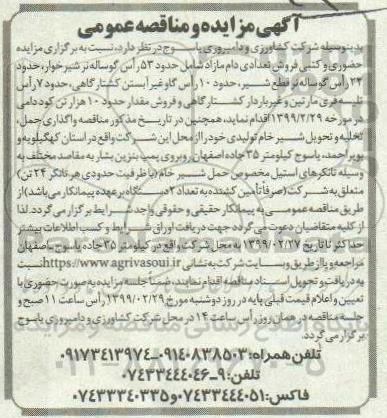 آگهی مزایده و مناقصه عمومی
بدینوسیله شرکت کشاورزی و دامپروری یاسوج در نظر دارد، نسبت به برگزاری مزایده
حضوری و کتبی فروش تعدادی دام مازاد شامل حدود ۵۳ رأس گوساله نر شیرخوار، حدود
۲۴ رأس گوساله نر قطع شیر، حدود ۱۰ رأس گاو غیر آبستن کشتارگاهی، حدود ۷ رأس
تلیسه فری مارتین و غیرباردار کشتارگاهی و فروش مقدار حدود ۱۰ هزار تن کود دامی
در مورخه ۱۳۹۹/۲/۲۹ اقدام نماید، همچنین در تاریخ مذکور مناقصه واگذاری حمل،
تخلیه و تحویل شیر خام تولیدی خود را از محل این شرکت واقع در استان کهگیلویه و
بویراحمد، یاسوج کیلومتر ۳۵ جاده اصفهان روبروی پمپ بنزین بشار به مقاصد مختلف به
وسیله تانکرهای استیل مخصوص حمل شیر خام (با ظرفیت حدودی هر تانکر ۲۴ تن)
متعلق به شرکت (صرفاً تأمین کشنده به تعداد ۲ دستگاه بر عهده پیمانکار می‌باشد) از
طریق مناقصه عمومی به پیمانکار حقیقی و حقوقی واجد شرایط برگزار می‌گردد. لذا
از کلیه متقاضیان دعوت می‌گردد جهت دریافت اوراق شرایط و کسب اطلاعات بیشتر
حداکثر تا تاریخ ۱۳۹۹/۰۲/۲۷ به محل شرکت واقع در کیلومتر ۳۵ جاده یاسوج - اصفهان
مراجعه و یا از طریق وبسایت شرکت به نشانی https://www.agrivasouj.ir نسبت
به دریافت و تحویل اسناد مناقصه اقدام نمایند، ضمناً جلسه مزایده به صورت حضوری با
تعیین و اعلام قیمت قبلی پایه در روز دوشنبه مورخ ۱۳۹۹/۰۲/۲۹ رأس ساعت ۱۱ صبح و
جلسه مناقصه در همان روز رأس ساعت ۱۴ در محل شرکت کشاورزی و دامپروری یاسوج
برگزار می‌گردد.
تلفن همراه: ۰۹۱۴۰۸۳۸۵۰۳ - ۰۹۱۷۳۴۱۳۹۷۴
تلفن: ۹-۰۷۴۳۳۴۴۴۰۴۶
فاکس: ۰۷۴۳۳۴۴۴۰۵۱ و ۰۷۴۳۳۳۴۰۳۳۵